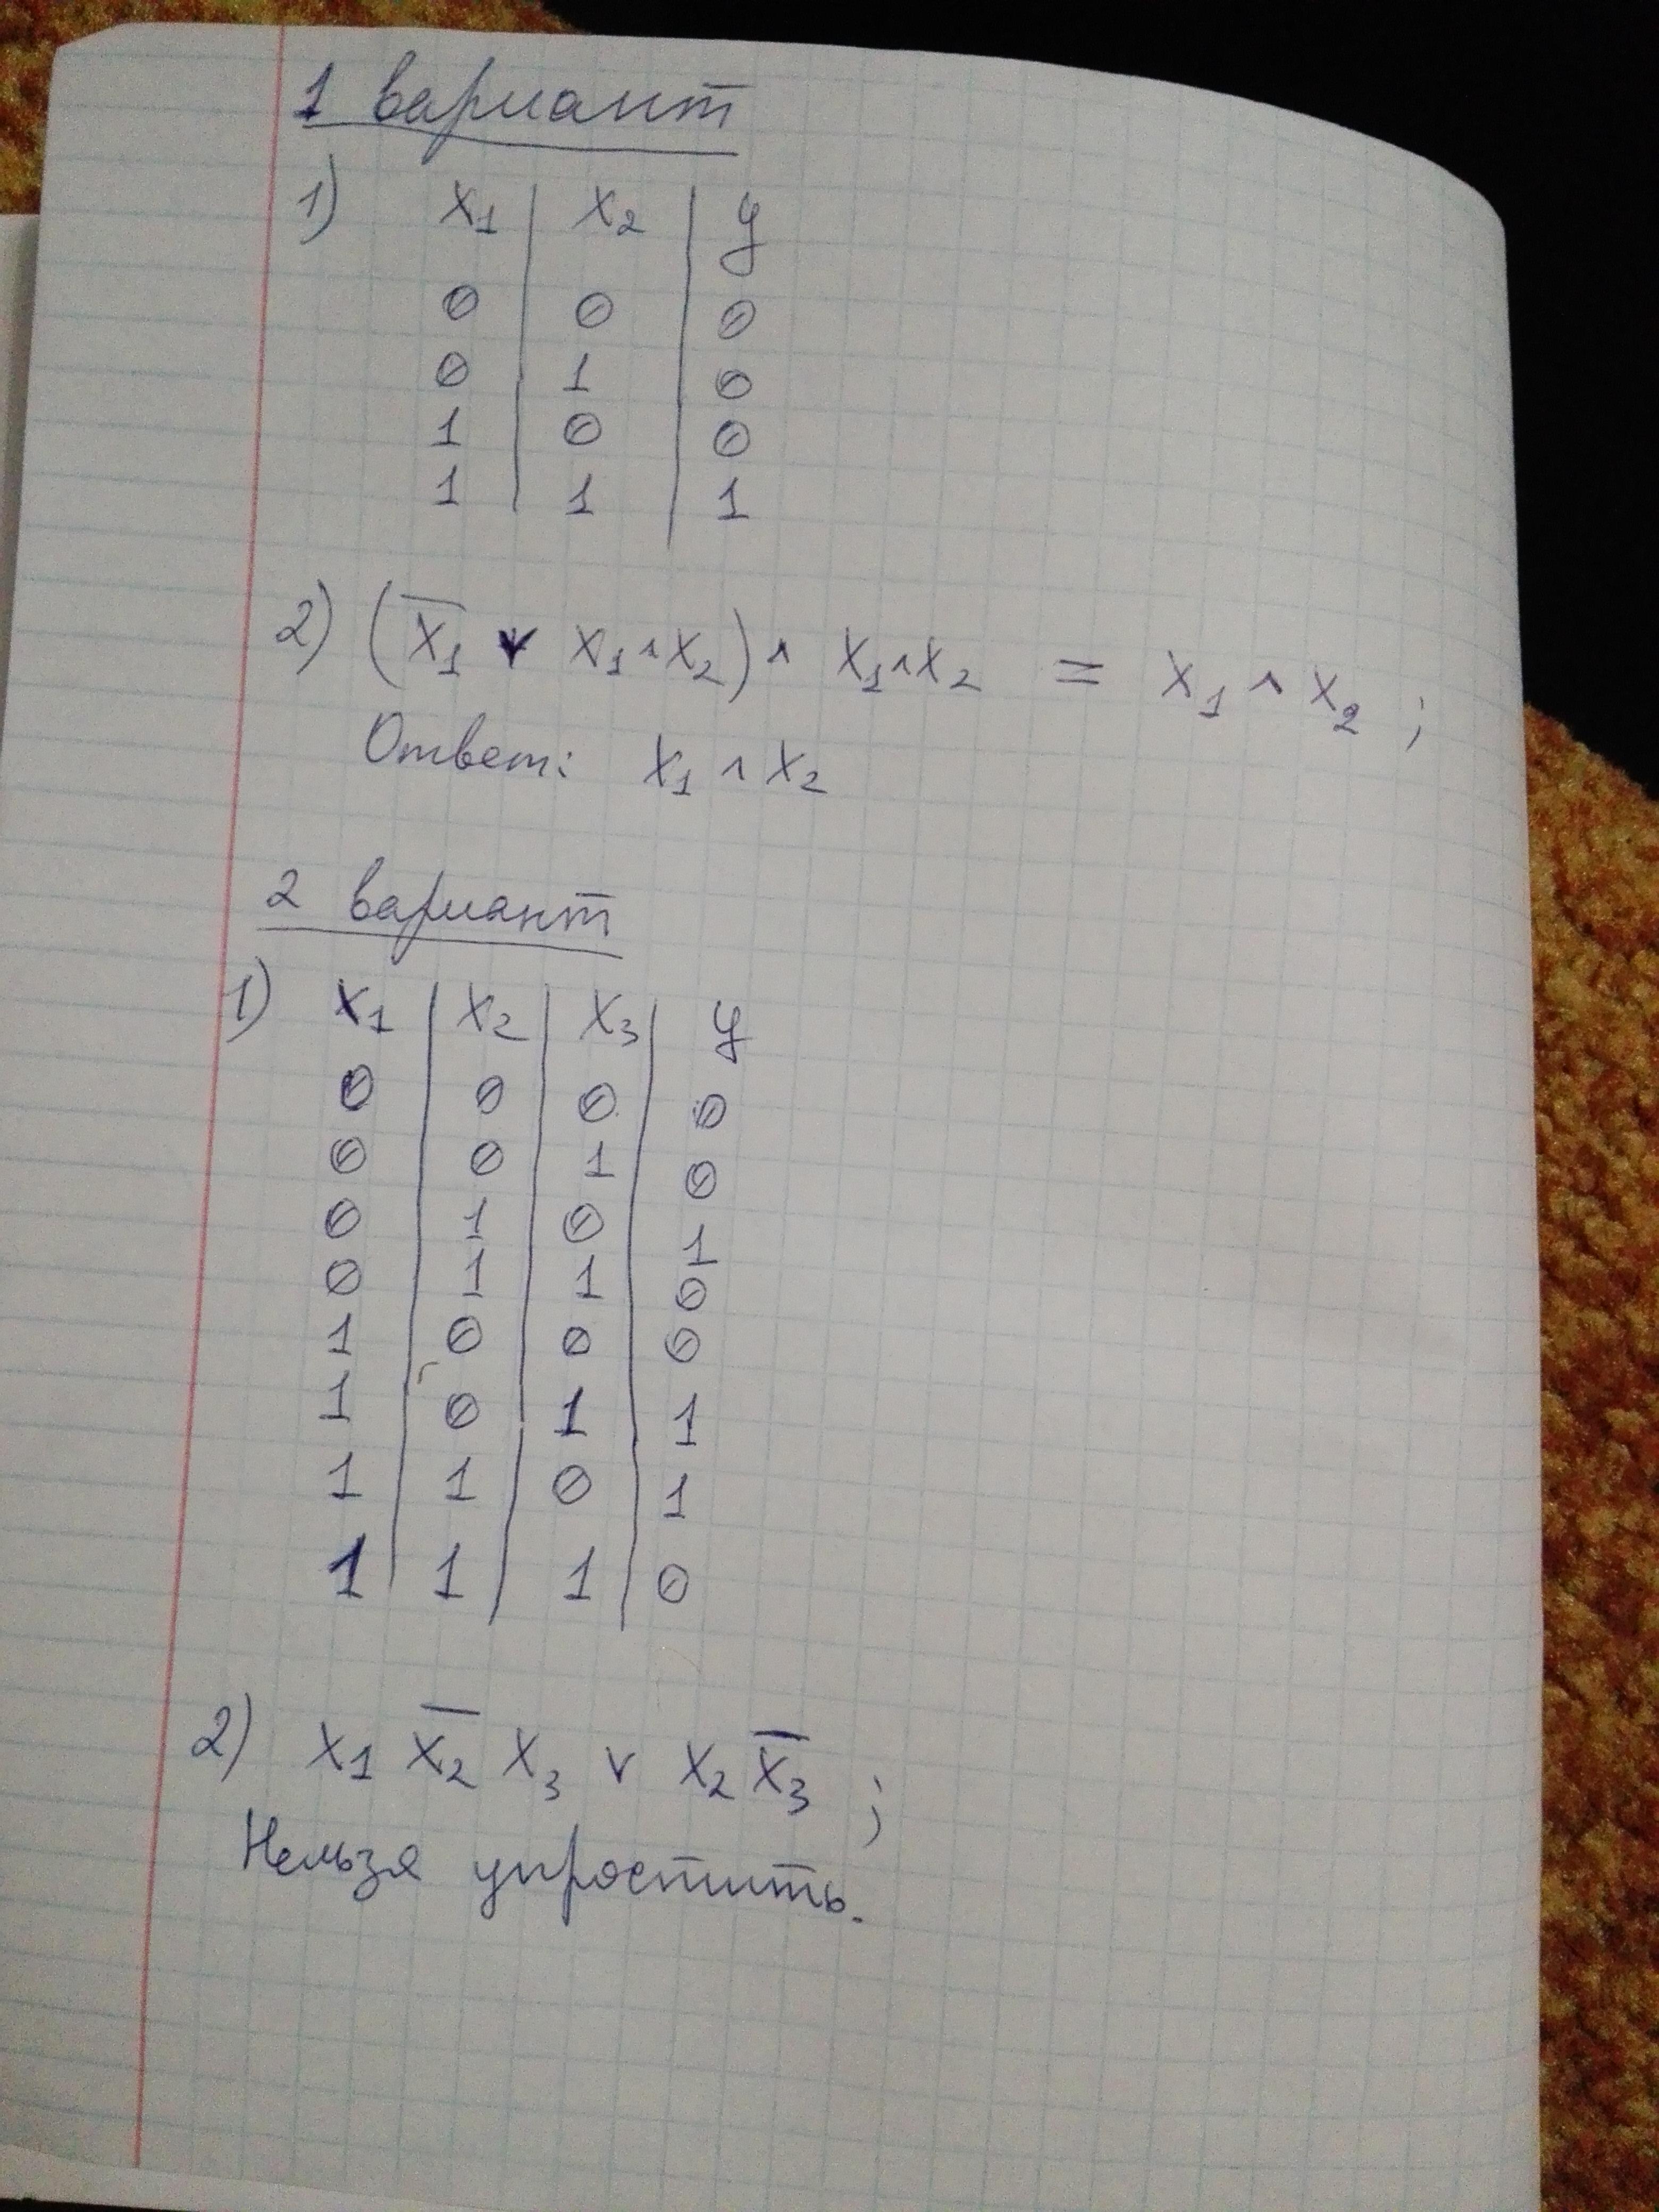 1 вариант
1) x₁ | x₂ | y
0 | 0 | 0
0 | 1 | 0
1 | 0 | 0
1 | 1 | 1
2) (x̅₁ ∨ x₁ ∧ x₂) ∧ x₁ ∧ x₂ = x₁ ∧ x₂ ;
Ответ: x₁ ∧ x₂
2 вариант
1) x₁ | x₂ | x₃ | y
0 | 0 | 0 | 0
0 | 0 | 1 | 0
0 | 1 | 0 | 1
0 | 1 | 1 | 0
1 | 0 | 0 | 0
1 | 0 | 1 | 1
1 | 1 | 0 | 1
1 | 1 | 1 | 0
2) x₁ x̅₂ x₃ ∨ x₂ x̅₃ ;
Нельзя упростить.